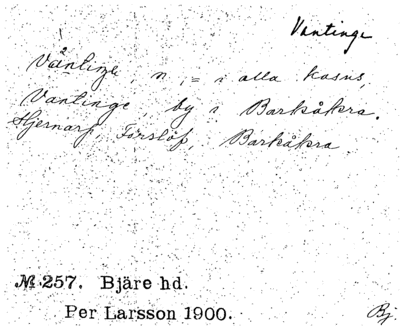 Vantinge
Vånlinge, n, = i alla kasus,
Vantinge, by i Barkåkra.
Hjernarp, Förslöf, Barkåkra
№ 257. Bjäre hd.
Per Larsson 1900.
Bj.